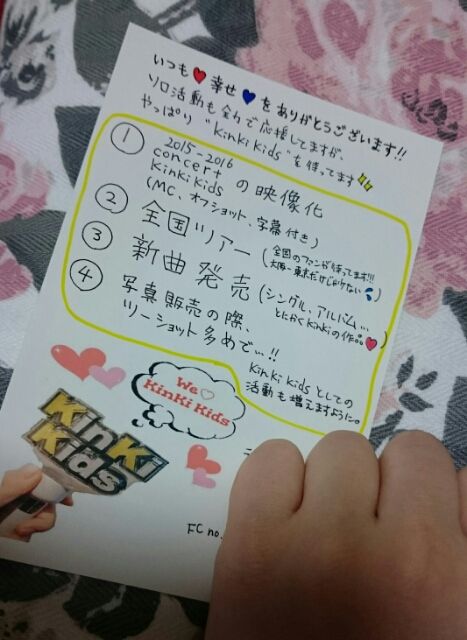 いつも❤幸せ💙をありがとうございます!!
ソロ活動も全力で応援してますが、
やっぱり"Kinki Kids"を待ってます
① 2015-2016 concert Kinki Kids の映像化
(MC、オフショット、字幕付き)
② 全国ツアー(全国のファンが待ってます!!! 大阪・東京だけじゃイケない)
③ 新曲発売(シングル、アルバム… とにかくKinkiの作品❤)
④ 写真販売の際、
ツーショット多めで…!!
Kinki Kidsとしての
活動も増えますように。
We ♡
KinKi Kids
KinKi
Kids
FC no.